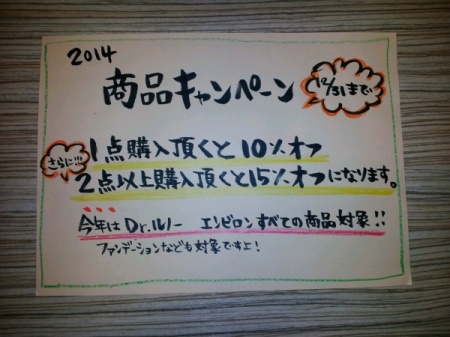 2014
商品キャンペーン
12/31まで
さらに!!!
1点購入頂くと10%オフ
2点以上購入頂くと15%オフになります。
今年はDr.ルノー エンビロンすべての商品対象!!
ファンデーションなども対象ですよ!